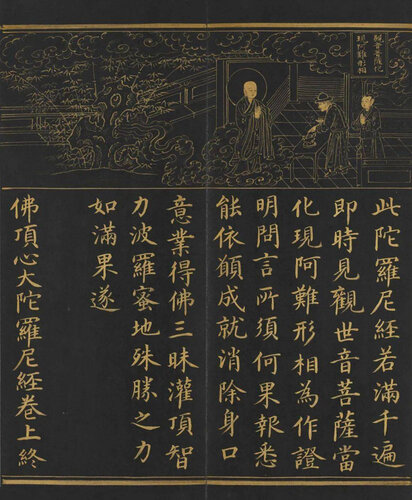 觀音菩薩化
現阿難形相
此陀羅尼經若滿千遍
即時見觀世音菩薩當
化現阿難形相為作證
明問言所須何果報悉
能依願成就消除身口
意業得佛三昧灌頂智
力波羅蜜地殊勝之力
如滿果遂
佛頂心大陀羅尼經卷上終